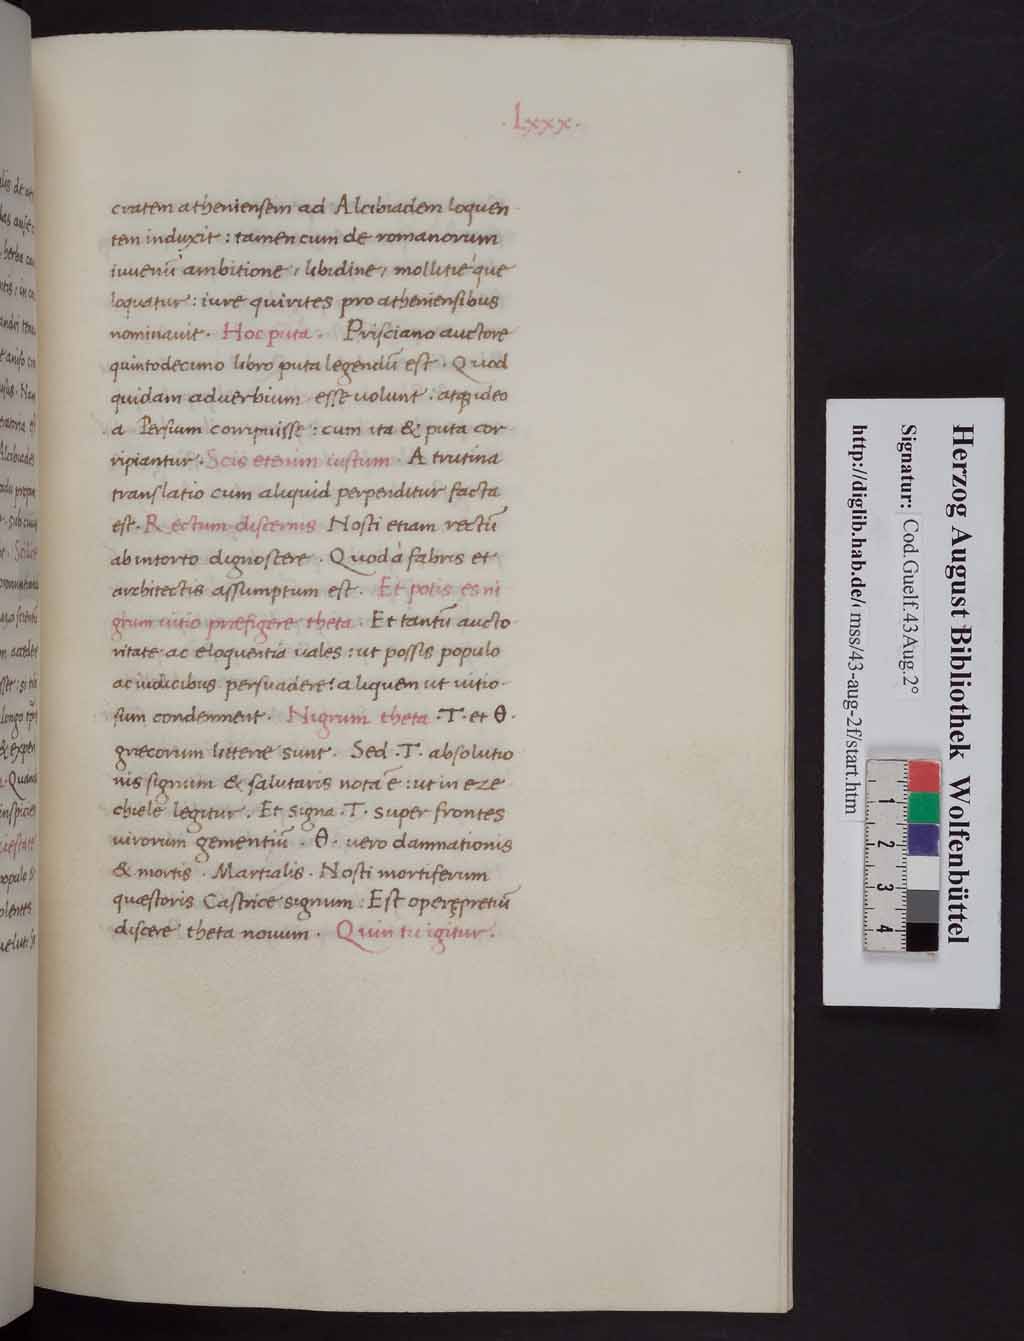 · Lxxx ·
cratem atheniensem ad Alcibiadem loquen
tem induxit : tamen cum de romanorum
iuuenū ambitione, libidine, mollitie que
loquatur : iure quirites pro atheniensibus
nominauit . Hoc puta . Prisciano auctore
quintodecimo libro puta legendū est . Quod
quidam aduerbium esse uolunt . atqꝫ ideo
a Persium corripuisse : cum ita & puta cor
ripiantur . Scis etenim iustum . A trutina
translatio cum aliquid perpenditur facta
est . Rectum discernis Nosti etiam rectū
ab intorto dignoscere . Quod à fabris et
architectis assumptum est . Et potis es ni
grum uitio præfigere theta . Et tantū aucto
ritate ac eloquentia uales : ut possis populo
ac iudicibus persuadere : aliquem ut uitio
sum condemnent . Nigrum theta . T . et θ .
græcorum litteræ sunt . Sed . T . absolutio
nis signum & salutaris nota ē : ut in eze
chiele legitur . Et signa . T . super frontes
uirorum gementiū . θ . uero damnationis
& mortis . Martialis . Nosti mortiferum
quæstoris Castrice signum : Est operępretiū
discere theta nouum . Quin tu igitur .
Herzog August Bibliothek Wolfenbüttel
Signatur: Cod.Guelf.43 Aug.2°
http://diglib.hab.de/ mss/43-aug-2f/start.htm
1
2
3
4